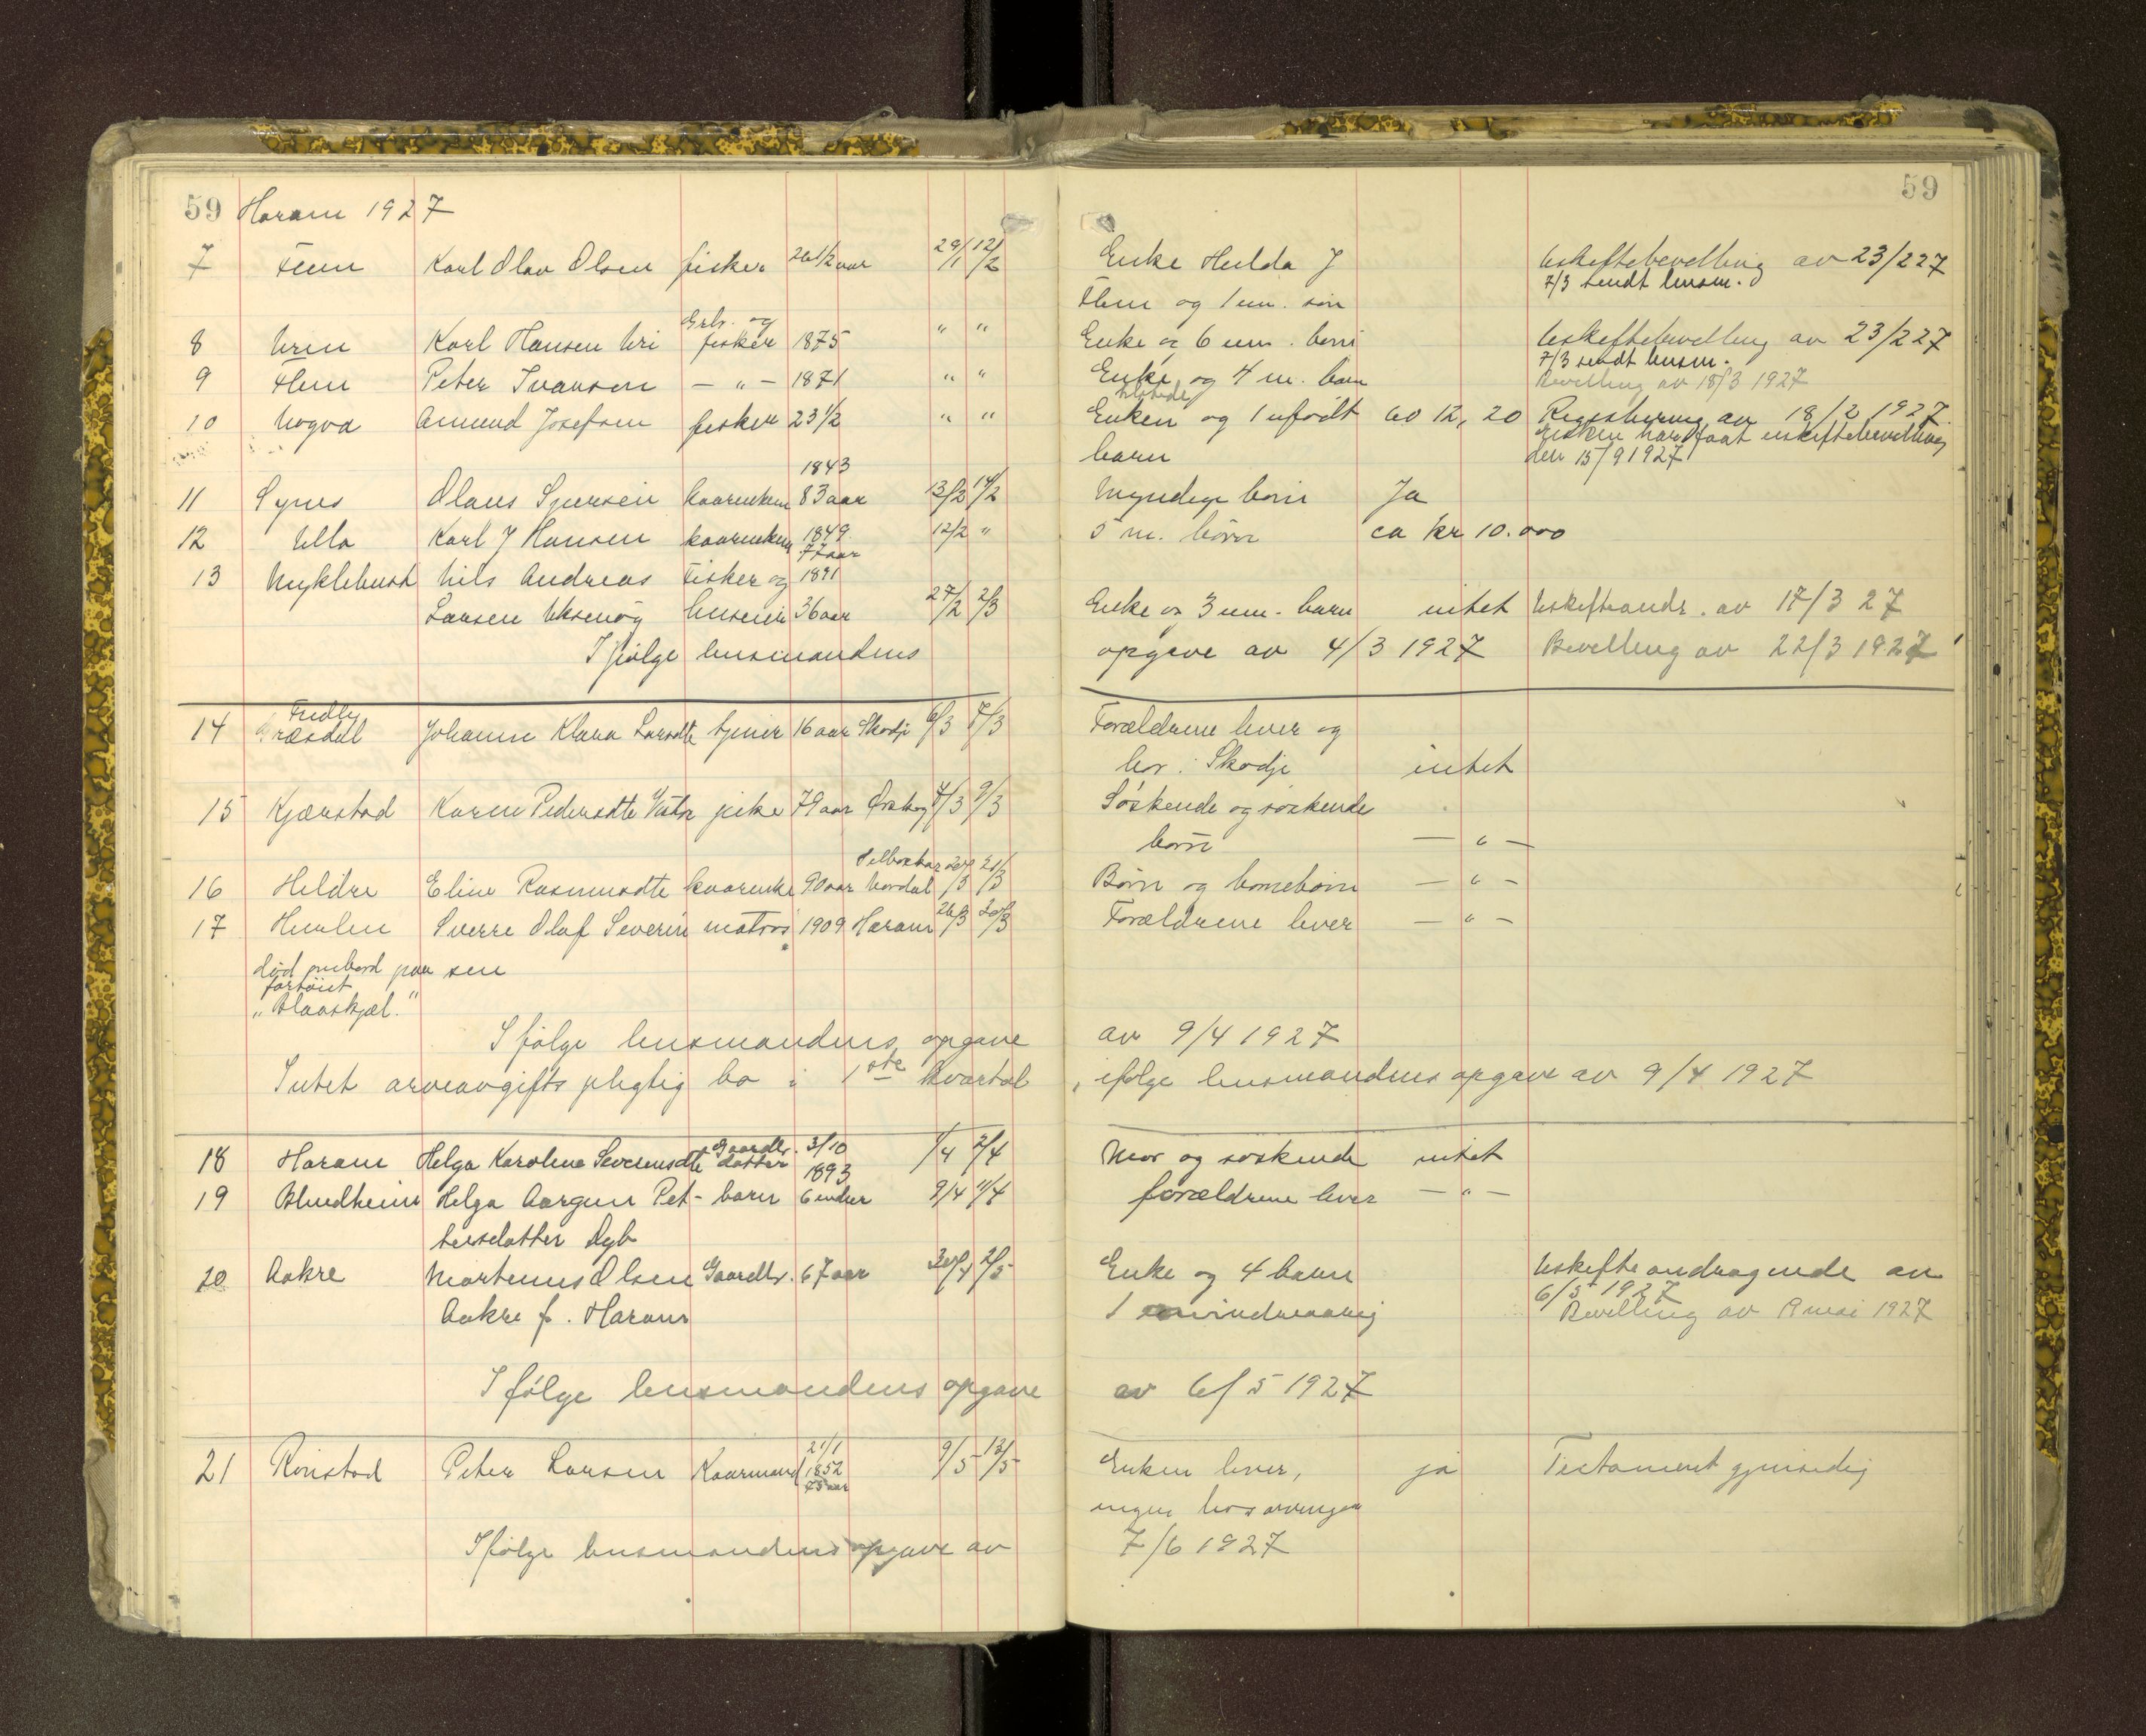 59 Haram 1927 59
7 Flem Karl Olav Olsen fisker 26 1/2 aar 29/1 12/2 Enke Hulda J Uskiftebevilling av 23/2 27
7/3 sendt lensm.
Flem og 1 um. søn
Grb. og
8 Urin Karl Hansen Uri fisker 1875 " " Enke og 6 um. børn Uskiftebevilling av 23/2 27
7/3 sendt lensm.
9 Flem Peter Ivarsen — " — 1871 " " Enke og 4 m. børn Bevilling av 18/3 1927
10 Nogva Amund Josefsen fisker 23 1/2 " " Enken og 1 ufødt 60 12, 20 Registrering av 18/2 1927.
Enken har faat uskiftebevilling
barn den 15/9 1927
1843
11 Synes Olaus Sjursen kaarenkem 83 aar 13/2 14/2 Myndige børn Ja
12 Ulla Karl J Hansen kaarenkem 1849 12/2 " 5 m. børn ca kr 10.000
77 aar
13 Myklebust Nils Andreas Fisker og 1891
Larsen Uksenøy 36 aar 27/2 2/3 Enke og 3 um. barn intet Uskifteandr. av 17/3 27
Ifølge lensmandens opgave av 4/3 1927 Bevilling av 22/3 1927
Fredly
14 Græsdal Johanne Klara Larsdtr tjener 16 aar Skodje 6/3 7/3 Forældrene lever og
bor i Skodje intet
15 Kjærstad Karen Pedersdtr Vatne pike 79 aar Ørskog 4/3 9/3 Søskende og søskende
børn — " —
16 Heldre Eline Rasmusdtr kaarenke 90 aar Nordal 20/3 21/3 Børn og børnebørn — " —
17 Hurlen Sverre Olaf Severin matros 1909 Haram 26/3 30/3 Forældrene lever — " —
død ombord paa sen
fartøiet
"Blaaskjæl."
Ifølge lensmandens opgave av 9/4 1927
Intet arveavgifts pligtig bo i 1ste kvartal, ifølge lensmandens opgave av 9/4 1927
18 Haram Helga Karoline Severinsdtr Gaardbr. datter 3/10 1893 1/4 2/4 Mor og søskende intet
19 Blindheim Helga Aargun Pet- barn 6 mdr 9/4 11/4 forældrene lever — " —
tersdatter Dyb
20 Aakre Martinus Olsen Gaardbr. 67 aar 30/4 2/5 Enke og 4 barn Uskifte andragende av
6/5 1927
Aakre f. Haram 1 mindreaarig Bevilling av 9 mai 1927
Ifølge lensmandens opgave av 6/5 1927
21/1
21 Rønstad Peter Larsen Kaarmand 1852 9/5 13/5 Enken lever, ja Testament gjensidig
75 aar
ingen livsarvinger
Ifølge lensmandens opgave av 7/6 1927